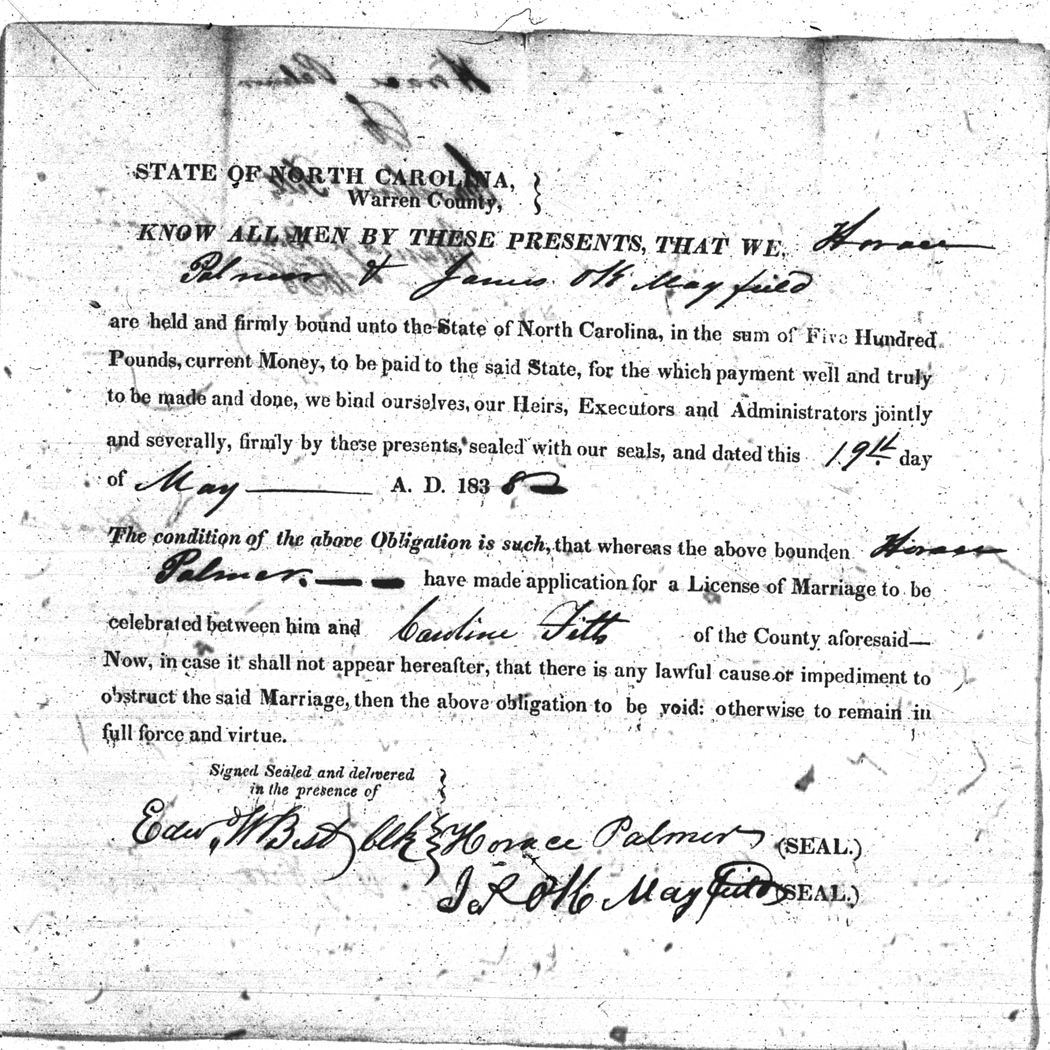 STATE OF NORTH CAROLINA,
Warren County,
KNOW ALL MEN BY THESE PRESENTS, THAT WE, Horace
Palmer & James OK Mayfield
are held and firmly bound unto the State of North Carolina, in the sum of Five Hundred
Pounds, current Money, to be paid to the said State, for the which payment well and truly
to be made and done, we bind ourselves, our Heirs, Executors and Administrators jointly
and severally, firmly by these presents, sealed with our seals, and dated this 19th day
of May A. D. 1838
The condition of the above Obligation is such, that whereas the above bounden Horace
Palmer. have made application for a License of Marriage to be
celebrated between him and Caroline Fitts of the County aforesaid—
Now, in case it shall not appear hereafter, that there is any lawful cause or impediment to
obstruct the said Marriage, then the above obligation to be void: otherwise to remain in
full force and virtue.
Signed Sealed and delivered
in the presence of
Edw W Best Clk Horace Palmer (SEAL.)
OK Mayfield (SEAL.)